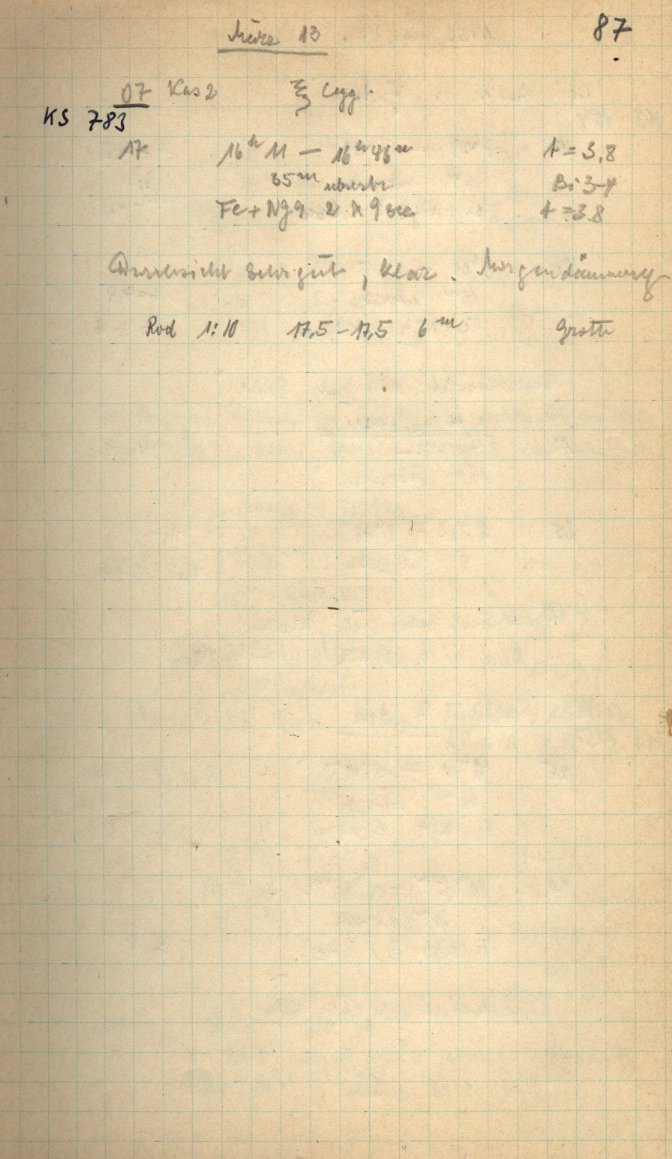 März 13 87
D7 Kas 2 ξ Cygni
KS 783
17 16h 11 — 16h 46m t = 3,8
35m Bi 3-4
Fe + Ng 9 2 x 9 sec t = 3.8
Durchsicht sehr gut, klar. Morgendämmerung
Rod 1:10 17,5 – 17,5 6m Grotti